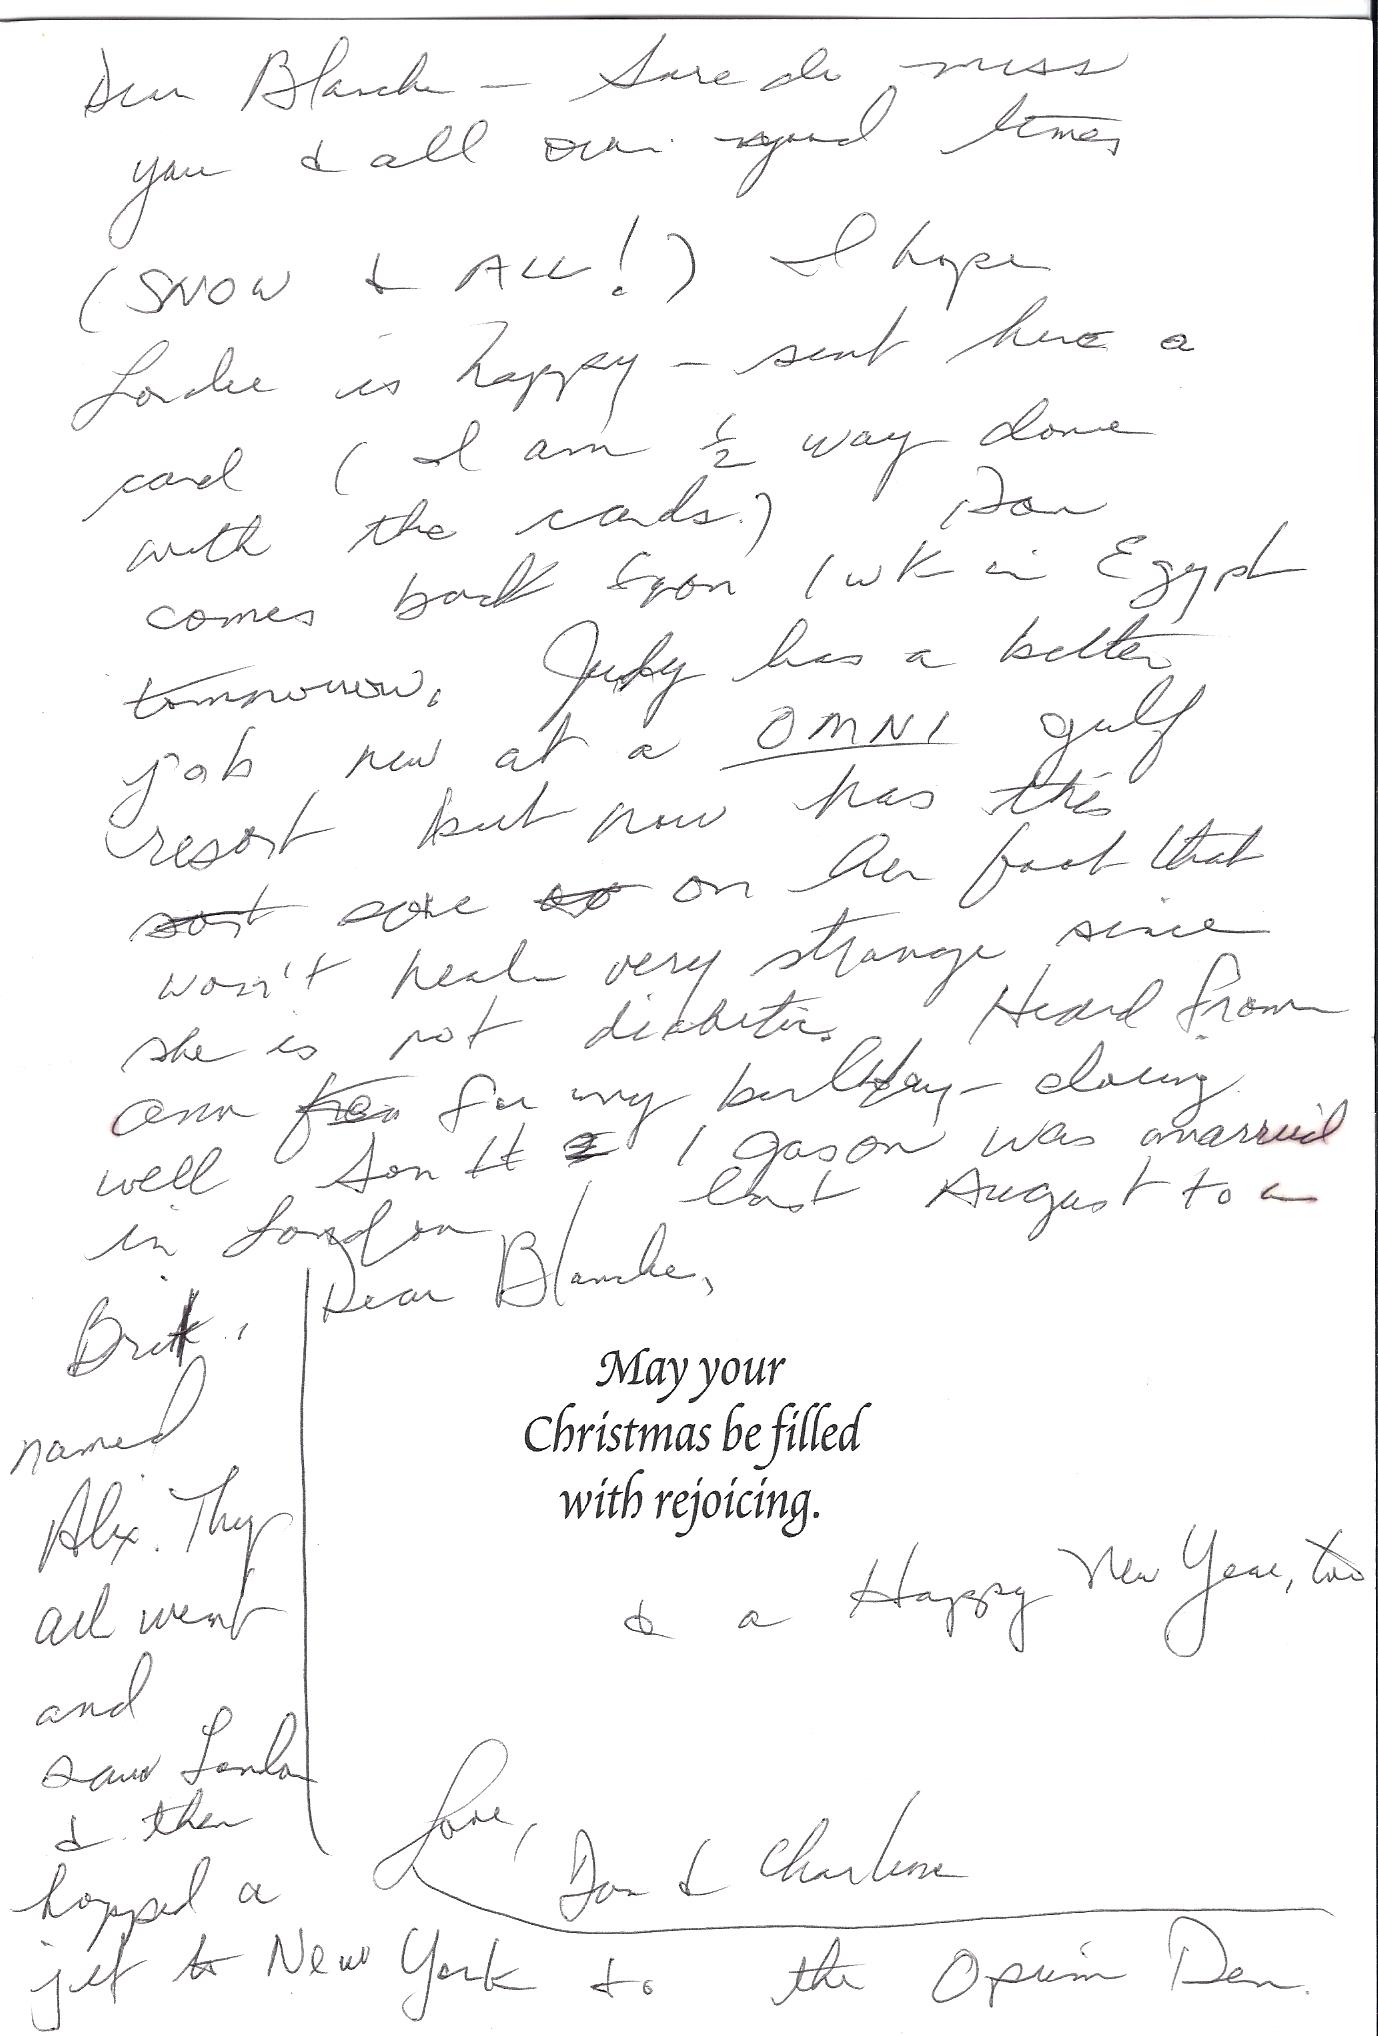 Dear Blanche - Sure do miss
you & all our good times
(SNOW & ALL!) I hope
is happy - sent her a
card (I am 1/2 way done
with the cards.) Don
comes back from 1 wk in Egypt
tomorrow. Judy has a better
job now at a OMNI gulf
resort but now has this
sore on her foot that
won't heal very strange since
she is not diabetic. Heard from
Ann for my birthday - doing
well Son # 1 Jason was married
in London last August to a
Brit.
named
Alix. They
all went
and
saw London
& then
hopped a
jet to New York to the Opium Den.
Dear Blanche,
May your
Christmas be filled
with rejoicing.
& a Happy New Year, too
Love,
Don & Charlene